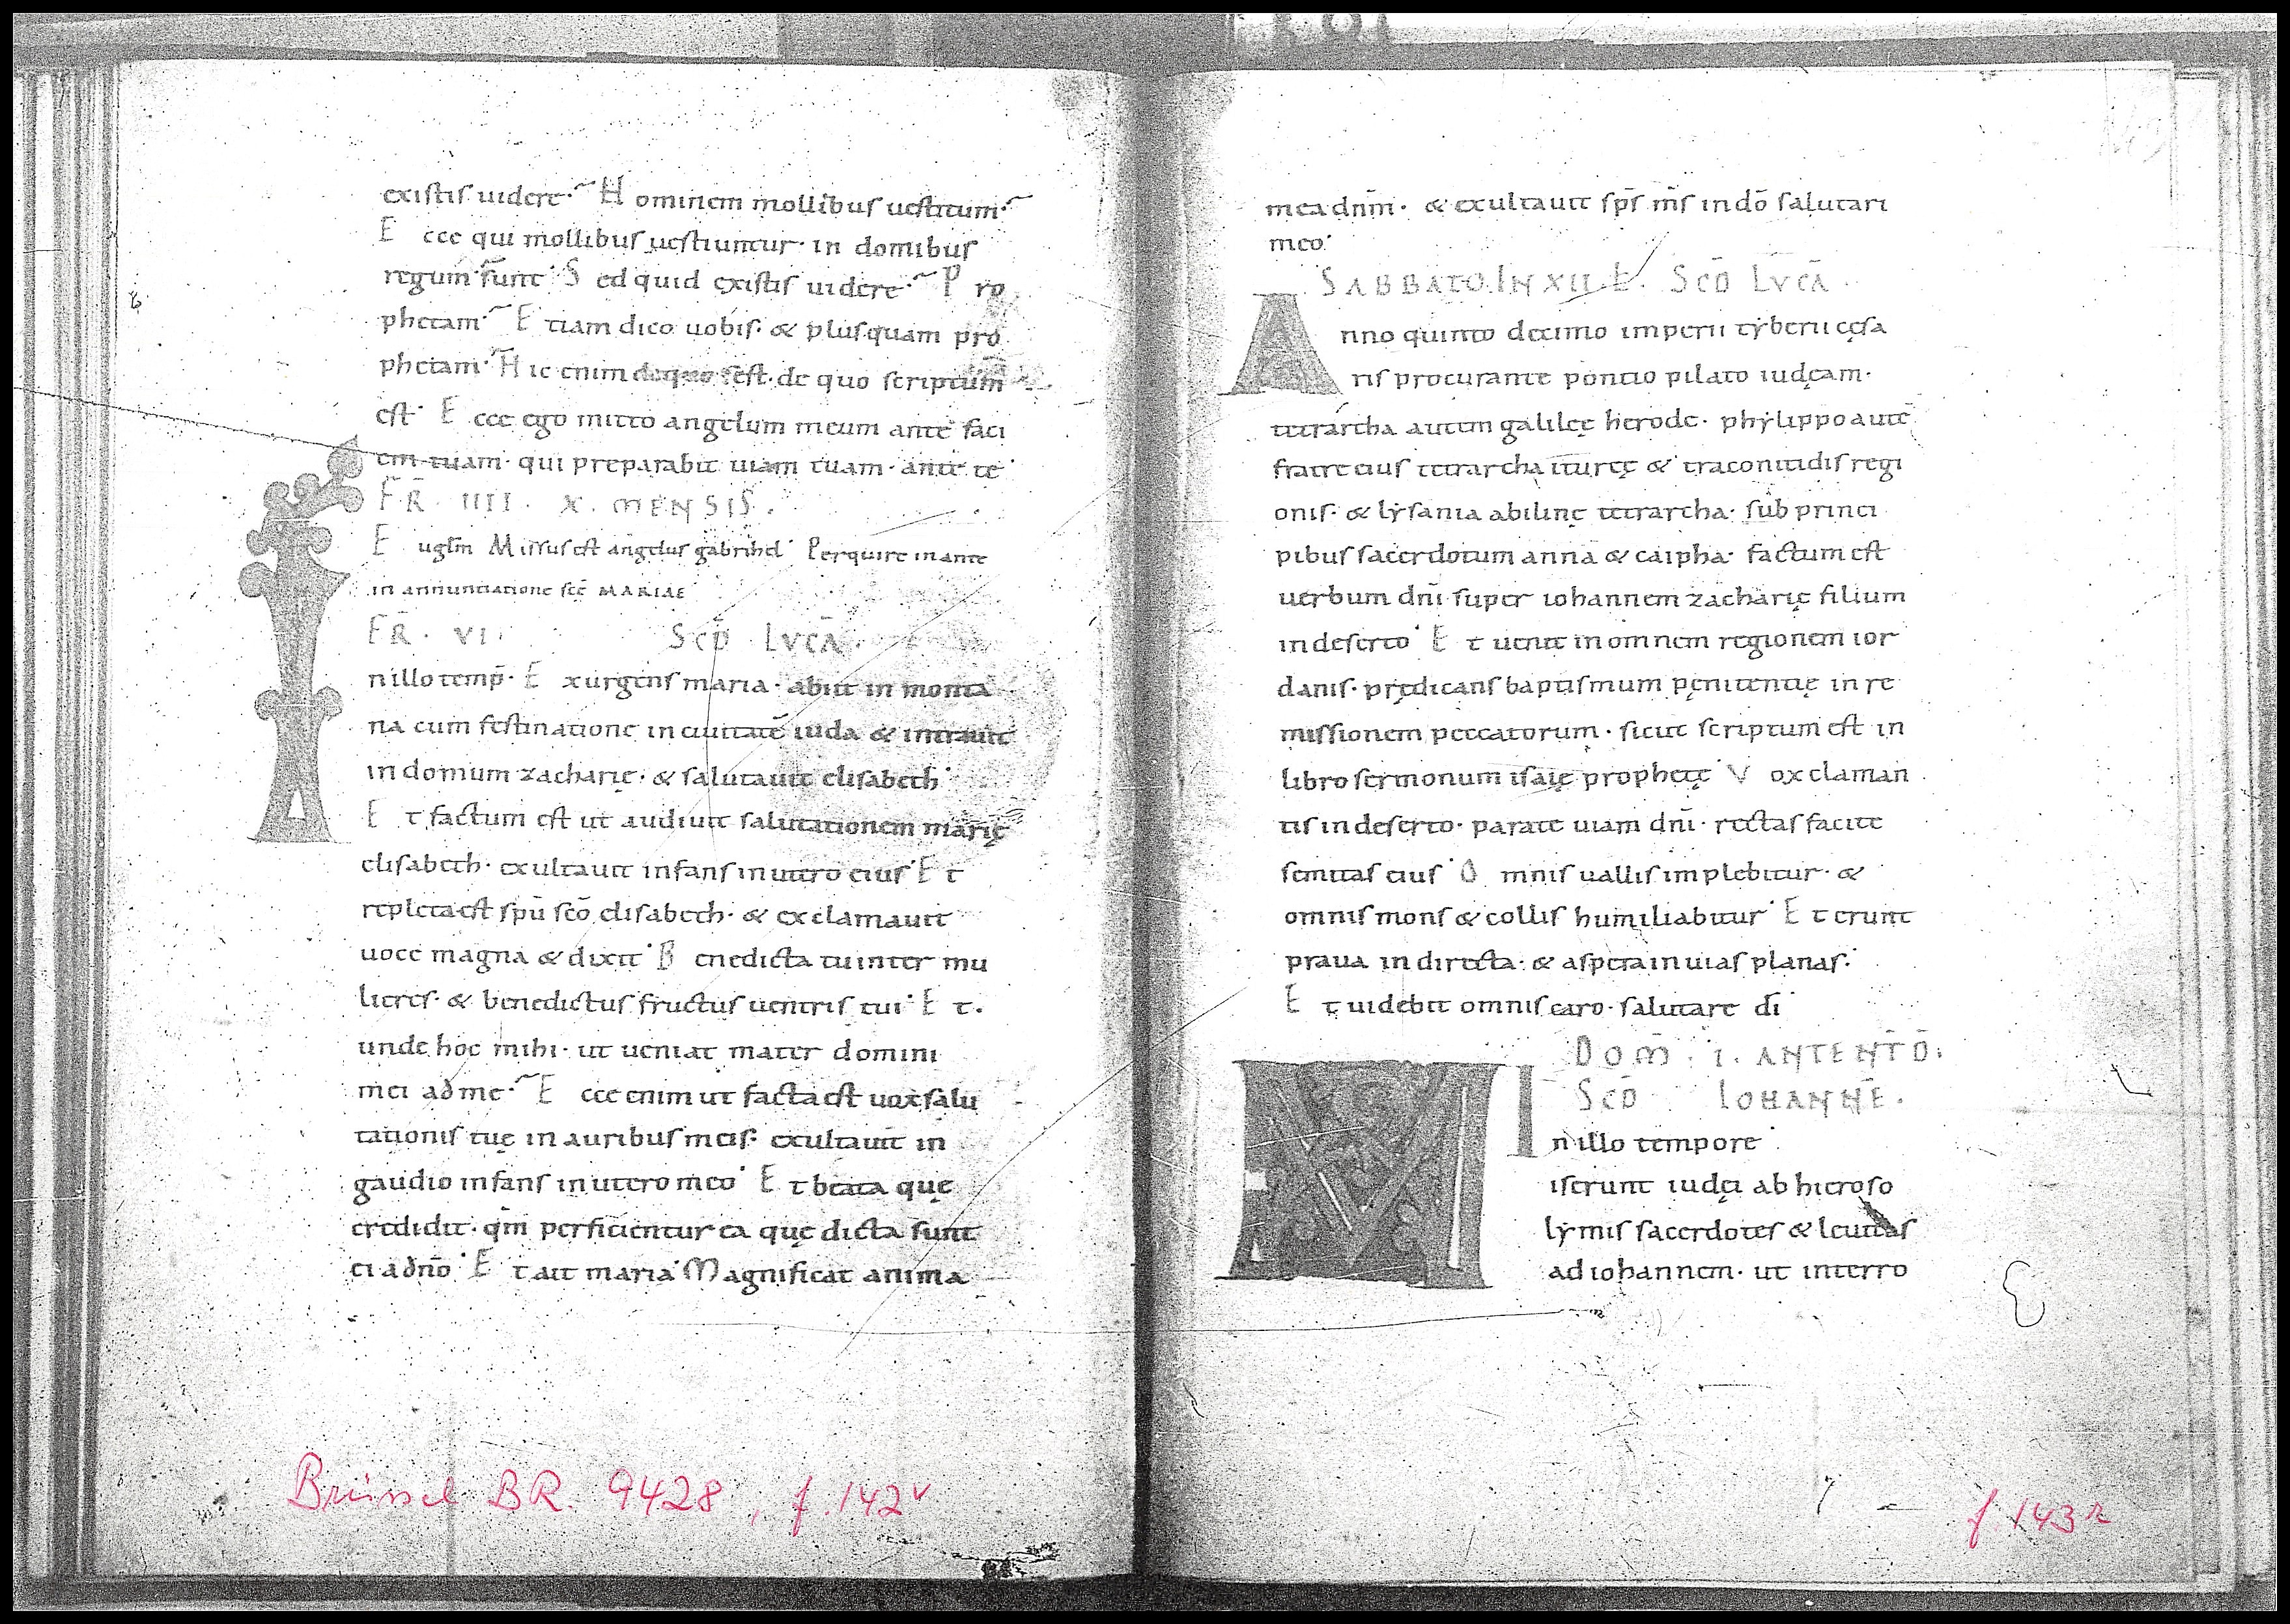 existis uidere· H ominem mollibus uestitum·
E cce qui mollibus uestiuntur· in domibus
regum sunt· S ed quid existis uidere· P ro
phetam· E tiam dico uobis· & plusquam pro
phetam· H ic enim est· de quo scriptum
est· E cce ego mitto angelum meum ante faci
em tuam· qui preparabit uiam tuam· ante te·
FR̄· IIII· X· MENSIS·
E uglm̄ Missus est angelus gabrihel· Perquire in ante
in annuntiatione scē MARIAE
FR̄· VI· SCD̄ LVCĀ·
I nillo temp̄· E xurgens maria· abiit in monta
na cum festinatione in ciuitatē iuda & intrauit
in domum zacharię· & salutauit elisabeth·
E t factum est ut audiuit salutationem marię
elisabeth· exultauit infans in utero eius· E t
repleta est spū scō elisabeth· & exclamauit
uoce magna & dixit· B enedicta tu inter mu
lieres· & benedictus fructus uentris tui· E t·
unde hoc mihi· ut ueniat mater domini
mei ad me· E cce enim ut facta est uox salu
tationis tuę in auribus meis· exultauit in
gaudio infans in utero meo· E t beata quę
credidit· qm̄ perficientur ea quę dicta sunt
ei a dn̄o· E t ait maria· Magnificat anima
Brüssel BR. 9428, f. 142v
mea dnm̄· & exultauit sps̄ ms̄ in dō salutari
meo·
SABBATO IN XII L· SCD̄ LVCĀ·
A nno quinto decimo imperii tyberii cęsa
ris procurante pontio pilato iudęam·
tetrarcha autem galileę herode· phylippo autē
fratre eius tetrarcha itureę & traconitidis regi
onis· & lysania abilinę tetrarcha· sub princi
pibus sacerdotum anna & caipha· factum est
uerbum dn̄i super iohannem zacharię filium
in deserto· E t uenit in omnem regionem ior
danis· prędicans baptismum pęnitentię in re
missionem peccatorum· sicut scriptum est in
libro sermonum isaię prophetę· V ox claman
tis in deserto· parate uiam dn̄i· rectas facite
semitas eius· O mnis uallis implebitur· &
omnis mons & collis humiliabitur· E t erunt
praua in directa· & aspera in uias planas·
E t uidebit omnis caro· salutare dī
DOM̄· I· ANTE NT̄ D̄·
SCD̄ IOHANNĒ·
I n illo tempore·
M iserunt iudęi ab hieroso
lymis sacerdotes & leuitas
ad iohannem· ut interro
f. 143r